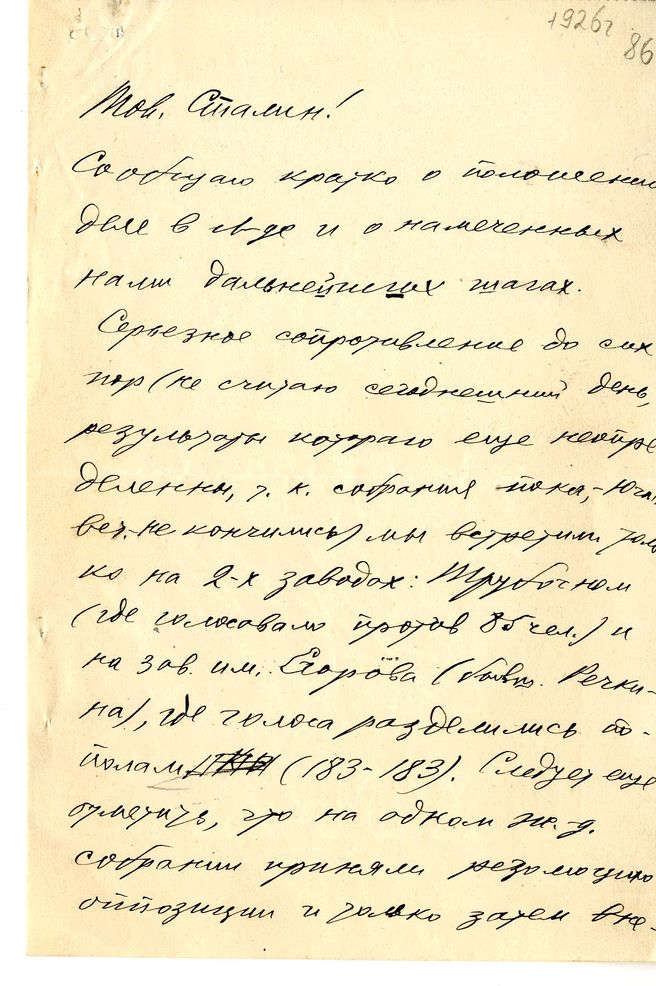 1926г
86
Тов. Сталин!
Сообщаю кратко о положении
дел в Л-де и о намеченных
нами дальнейших шагах.
Серьезное сопротивление до сих
пор (не считаю сегодняшний день,
результаты котораго еще неопре
деленны, т. к. собрания пока,
не кончились) мы встретили толь
ко на 2-х заводах: Трубочном
(где голосовало против 85 чел.) и
на зав. им. Егорова (бывш. Речки-
на), где голоса разделились по-
полам (183-183). Следует еще
отметить, что на одном ж.-д.
собрании приняли резолюцию
оппозиции и только затем вне-